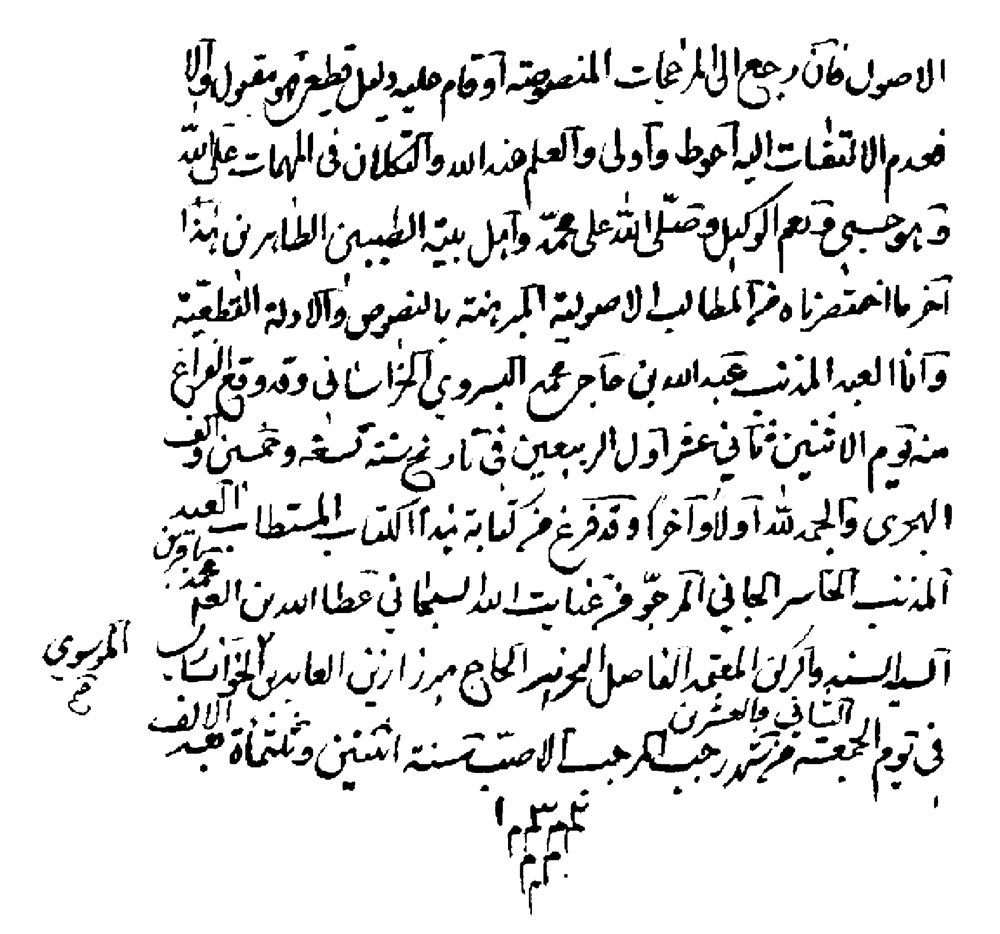 الاصول فان رجع الى المرجحات المنصوصة او قام عليه دليل قطعى فهو مقبول والا
فعدم الالتفات اليه احوط واولى والعلم عند الله والتكلان فى المهمات على الله
وهو حسبى ونعم الوكيل وصلّى الله على محمّد واهل بيته الطيبين الطاهرين هذا
آخر ما اختصرناه من المطالب الاصولية المبرهنة بالنصوص والادلة القطعيّة
وانا العبد المذنب عبد الله بن حاجى محمد البشروي الخراسانى وقد وقع الفراغ
منه يوم الاثنين ثاني عشر اول الربيعين فى تاريخ سنة تسعة وخمسين والف
الهجرى والحمد لله اولا وآخرا وقد فرغ من كتابة هذا الكتاب المستطاب العبد
المذنب الخاسر الجاني المرجوّ من عنايت الله السبحاني عطا الله بن العم محمد باقر بن
السيد السند والركن المعتمد الفاضل الحاج ميرزا زين العابدين الخوانسارى الموسوي
فى يوم الجمعة الثانى والعشرين من شهر رجب المرجب الاصب سنة اثنين وثلثمأة بعد الالف